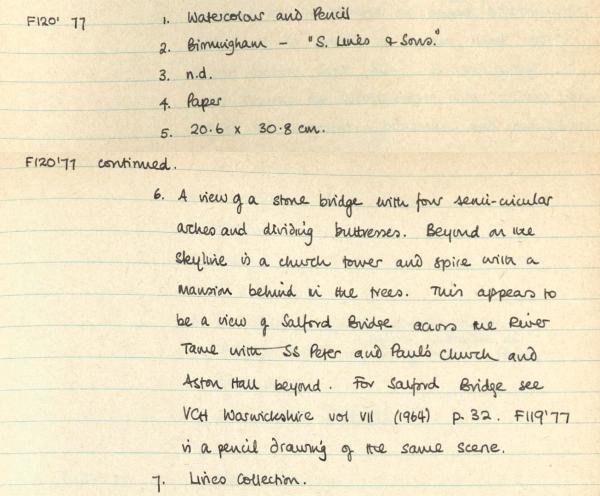 F120' 77 1. Watercolour and Pencil
2. Birmingham - "S. Lines & Sons."
3. n.d.
4. Paper
5. 20.6 x 30.8 cm.
F120'77 continued.
6. A view of a stone bridge with four semi-circular
arches and dividing buttresses. Beyond on the
skyline is a church tower and spire with a
mansion behind in the trees. This appears to
be a view of Salford Bridge across the River
Tame with SS Peter and Paul's church and
Aston Hall beyond. For Salford Bridge see
VCH Warwickshire vol VII (1964) p. 32. F119'77
is a pencil drawing of the same scene.
7. Lines Collection.